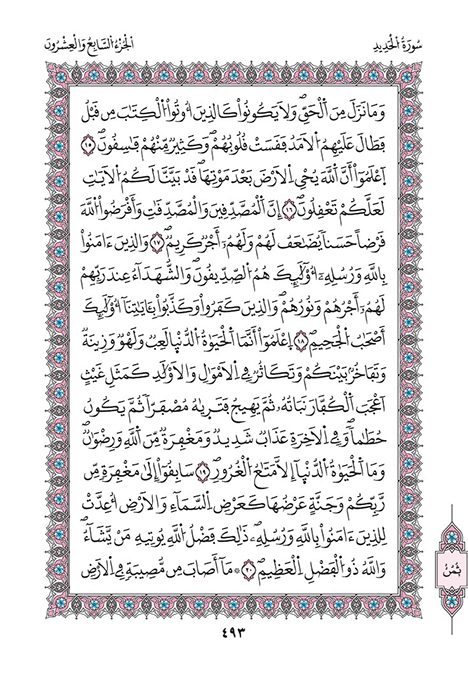 سُورَةُ الْحَدِيدِ
الْجُزْءُ السَّابِعُ وَالْعِشْرُونَ
وَمَا نَزَلَ مِنَ اَلْحَقِّ وَلَا يَكُونُواْ كَالذِينَ أُوتُواْ اُلْكِتَٰبَ مِن قَبْلُ
فَطَالَ عَلَيْهِمُ اُلَامَدُ فَقَسَتْ قُلُوبُهُمْ وَكَثِيرٌ مِّنْهُمْ فَٰسِقُونَ ١٥
اِعْلَمُواْ أَنَّ اَللَّهَ يُحْيِ اِلَارْضَ بَعْدَ مَوْتِهَا قَدْ بَيَّنَّا لَكُمُ اُلَايَٰتِ
لَعَلَّكُمْ تَعْقِلُونَ ١٦ إِنَّ اَلْمُصَّدِّقِينَ وَالْمُصَّدِّقَٰتِ وَأَقْرَضُواْ اُللَّهَ
قَرْضاً حَسَناً يُضَٰعَفُ لَهُمْ وَلَهُمُۥٓ أَجْرٌ كَرِيمٌ ١٧ وَالذِينَ ءَامَنُواْ
بِاللَّهِ وَرُسُلِهِۦٓ أُوْلَٰٓئِكَ هُمُ اُلصِّدِّيقُونَ وَالشُّهَدَآءُ عِندَ رَبِّهِمْ
لَهُمُۥٓ أَجْرُهُمْ وَنُورُهُمْ وَالذِينَ كَفَرُواْ وَكَذَّبُواْ بِـَٔايَٰتِنَآ أُوْلَٰٓئِكَ
أَصْحَٰبُ اُلْجَحِيمِ ١٨ اِعْلَمُوٓاْ أَنَّمَا اَلْحَيَوٰةُ اُلدُّنْيَا لَعِبٌ وَلَهْوٌ وَزِينَةٌ
وَتَفَاخُرٌ بَيْنَكُمْ وَتَكَاثُرٌ فِي اِلَامْوَٰلِ وَالَاوْلَٰدِ كَمَثَلِ غَيْثٍ
اَعْجَبَ اَلْكُفَّارَ نَبَاتُهُۥ ثُمَّ يَهِيجُ فَتَر۪يٰهُ مُصْفَرّاً ثُمَّ يَكُونُ
حُطَٰماً وَفِي اِلَاخِرَةِ عَذَابٌ شَدِيدٌ وَمَغْفِرَةٌ مِّنَ اَللَّهِ وَرِضْوَٰنٌ
وَمَا اَلْحَيَوٰةُ اُلدُّنْيَآ إِلَّا مَتَٰعُ اُلْغُرُورِ ١٩ سَابِقُوٓاْ إِلَىٰ مَغْفِرَةٍ مِّن
رَّبِّكُمْ وَجَنَّةٍ عَرْضُهَا كَعَرْضِ اِلسَّمَآءِ وَالَارْضِ أُعِدَّتْ
لِلذِينَ ءَامَنُواْ بِاللَّهِ وَرُسُلِهِۦ ذَٰلِكَ فَضْلُ اُللَّهِ يُوتِيهِ مَنْ يَّشَآءُ
وَاللَّهُ ذُو اُلْفَضْلِ اِلْعَظِيمِ ٢٠ ۞ مَآ أَصَابَ مِن مُّصِيبَةٍ فِي اِلَارْضِ
ثُمُنُ
٤٩٣